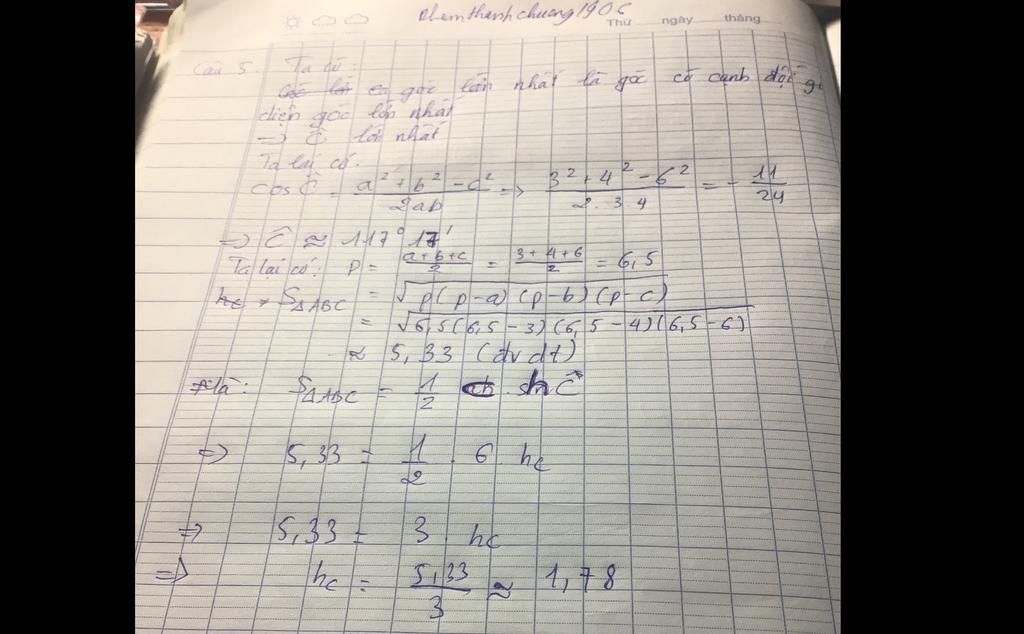 Phamthanhchuong1906
Thứ ngày tháng
Câu 5. Ta có:
có góc lớn nhất là góc có cạnh đối
diện góc lớn nhất
=> Ĉ lớn nhất
Ta lại có.
cos Ĉ = (a² + b² - c²)/(2ab) => (3² + 4² - 6²)/(2. 3. 4) = - 11/24
=> Ĉ ≈ 117° 17'
Ta lại có: P = (a+b+c)/2 = (3+4+6)/2 = 6,5
S△ABC = √(p(p-a)(p-b)(p-c))
= √(6,5(6,5-3)(6,5-4)(6,5-6))
≈ 5,33 (đvdt)
S△ABC = 1/2 . Ĉ
=> 5,33 = 1/2 . 6 . hc
=> 5,33 = 3 . hc
=> hc = 5,33/3 ≈ 1,78